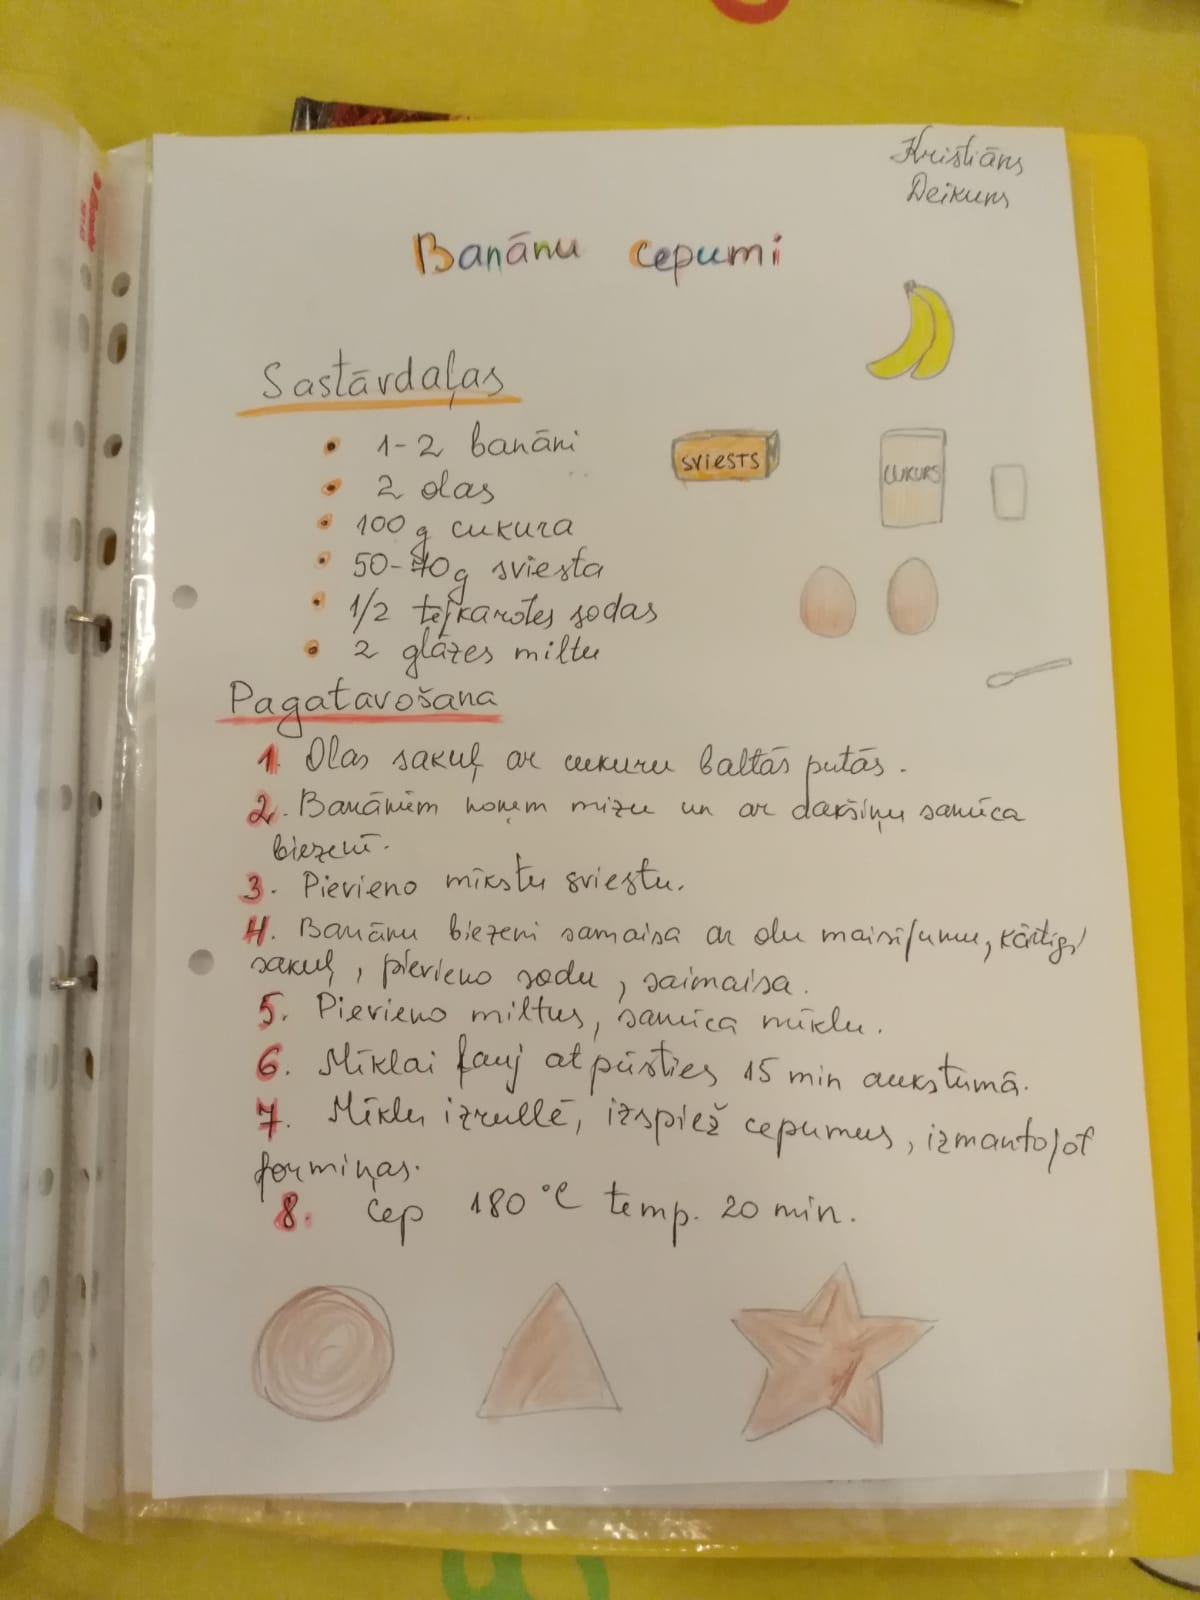 Kristiāns
Deikuns
Banānu cepumi
Sastārdaļas
1-2 banāni
2 olas
100 g cukura
50-70g sviesta
1/2 tējkarotes sodas
2 glāzes miltu
SViESTS
CUKURS
Pagatavošana
1. Olas sakuļ ar cukuru baltās putās.
2. Banāniem noņem mizu un ar dakšiņu samīca
biezenī.
3. Pievieno mīkstu sviestu.
4. Banānu biezeni samaisa ar olu maisījumu, kārtīgi
sakuļ, pievieno sodu, saimaisa.
5. Pievieno miltus, samīca mīklu.
6. Mīklai ļauj atpūsties 15 min aukstumā.
7. Mīklu izrullē, izspiež cepumus, izmantojot
formiņas.
8. Cep 180 °C temp. 20 min.